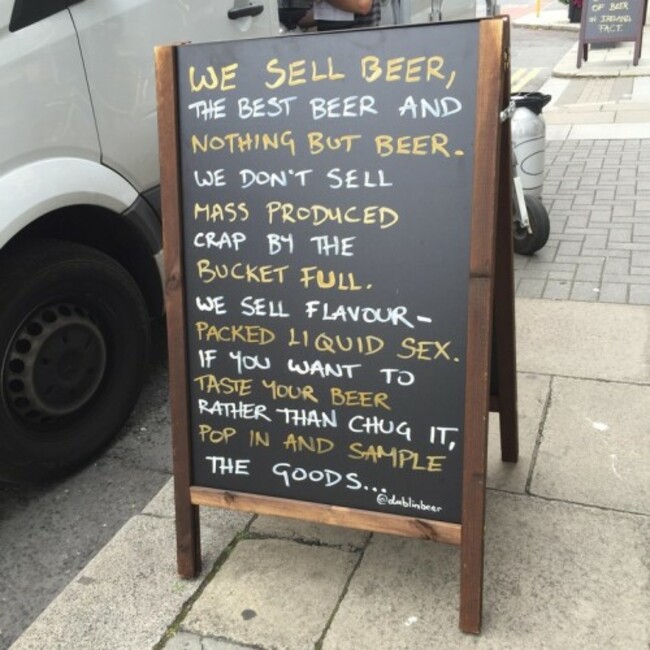 WE SELL BEER,
THE BEST BEER AND
NOTHING BUT BEER.
WE DON'T SELL
MASS PRODUCED
CRAP BY THE
BUCKET FULL.
WE SELL FLAVOUR-
PACKED LIQUID SEX.
IF YOU WANT TO
TASTE YOUR BEER
RATHER THAN CHUG IT,
POP IN AND SAMPLE
THE GOODS...
@dublinbeer
OF BEER
IN IRELAND
FACT.